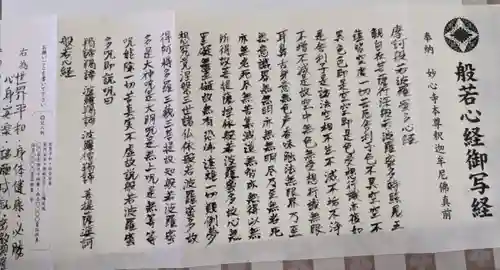 般若心経御写経
奉納 妙心寺本尊釈迦牟尼佛真前
摩訶般若波羅蜜多心経
観自在菩薩行深般若波羅蜜多時照見五
蘊皆空度一切苦厄舎利子色不異空空不
異色色即是空空即是色受想行識亦復如
是舎利子是諸法空相不生不滅不垢不浄
不増不減是故空中無色無受想行識無眼
耳鼻舌身意無色声香味触法無眼界乃至
無意識界無無明亦無無明尽乃至無老死
亦無老死尽無苦集滅道無智亦無得以無
所得故菩提薩埵依般若波羅蜜多故心無
罣礙無罣礙故無有恐怖遠離一切顛倒夢
想究竟涅槃三世諸仏依般若波羅蜜多故
得阿耨多羅三藐三菩提故知般若波羅蜜
多是大神呪是大明呪是無上呪是無等等
呪能除一切苦真実不虚故説般若波羅蜜
多呪即説呪曰
羯諦羯諦 波羅羯諦 波羅僧羯諦 菩提薩婆訶
般若心経
お願いごとを書いてください
右為世界平和・身体健康・必勝
心身安楽